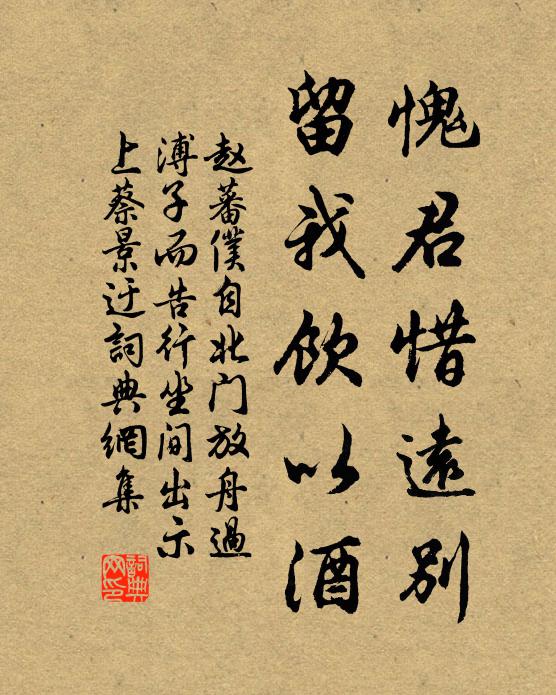 愧君惜遠別
留我飲以酒
赵蕃僕自北门放舟過
溥子而告行坐间出示
上蔡景迂詞典網集
詞典
网印